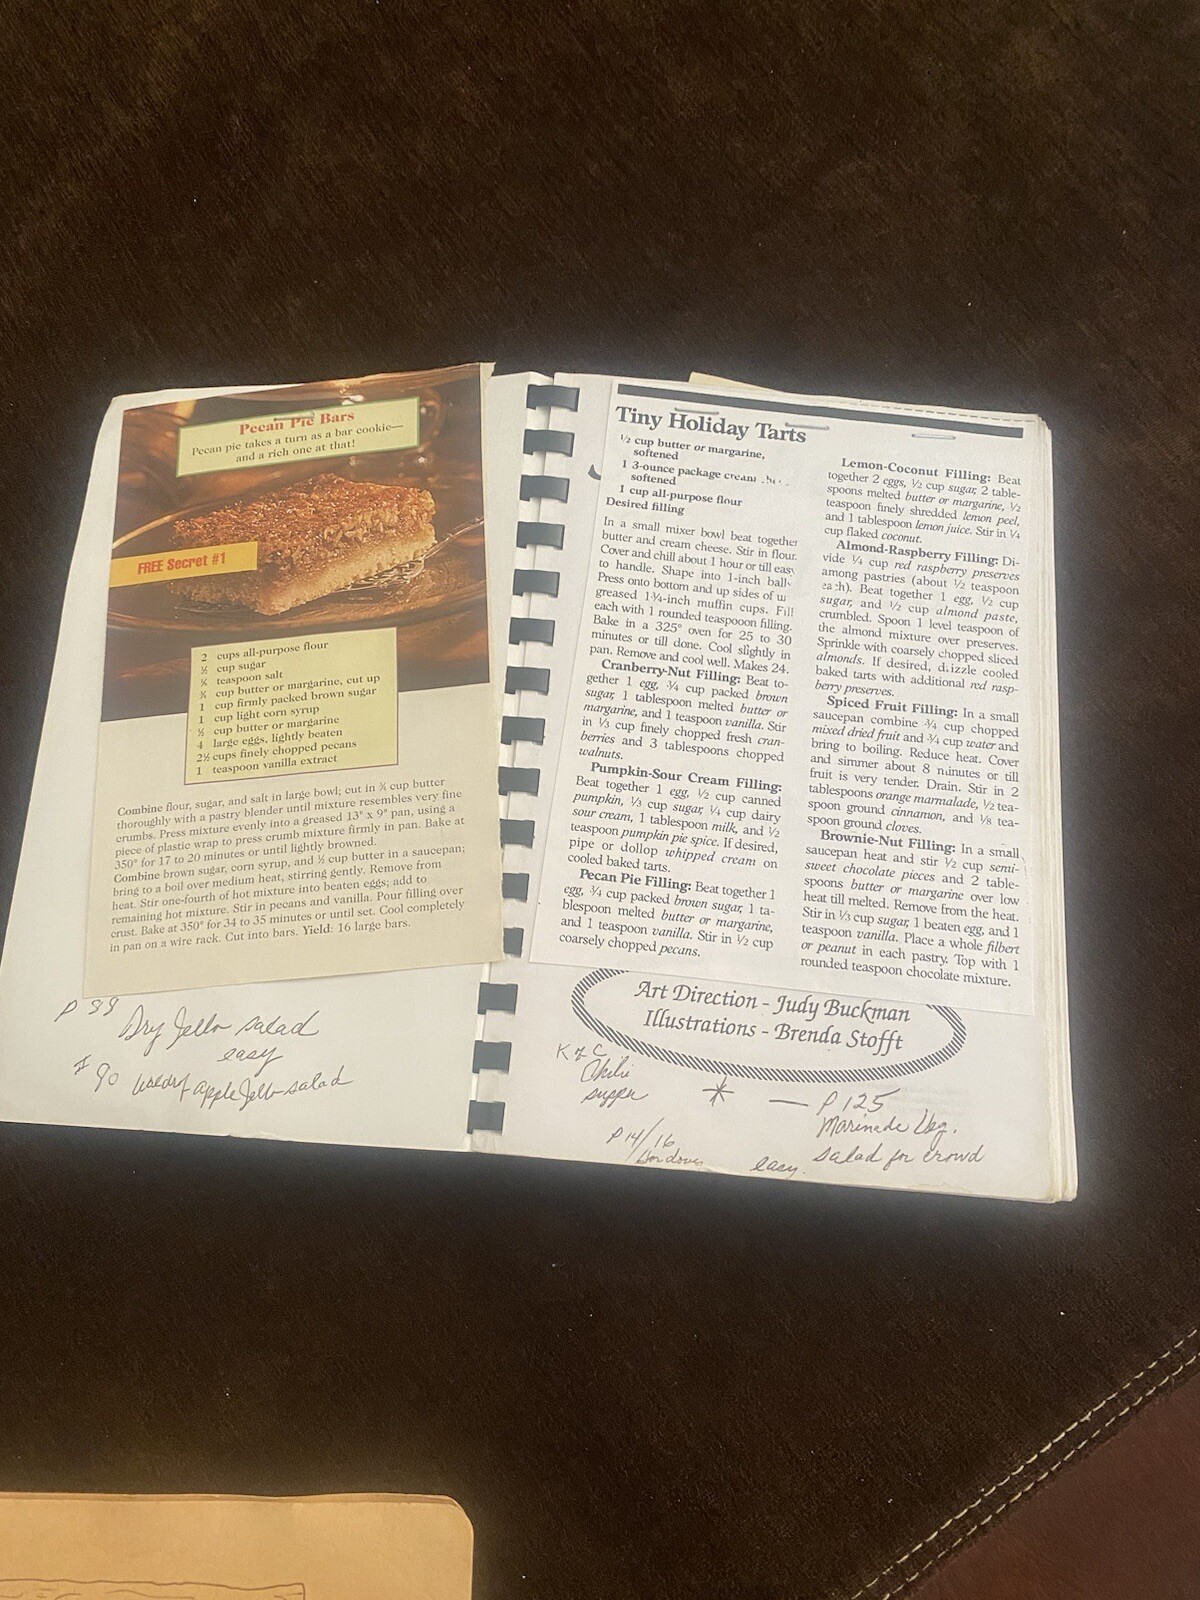 Pecan Pie Bars
Pecan pie takes a turn as a bar cookie—
and a rich one at that!
FREE Secret #1
2 cups all-purpose flour
½ cup sugar
teaspoon salt
¾ cup butter or margarine, cut up
1 cup firmly packed brown sugar
1 cup light corn syrup
½ cup butter or margarine
4 large eggs, lightly beaten
2½ cups finely chopped pecans
1 teaspoon vanilla extract
Combine flour, sugar, and salt in large bowl; cut in ¾ cup butter
thoroughly with a pastry blender until mixture resembles very fine
crumbs. Press mixture evenly into a greased 13" x 9" pan, using a
piece of plastic wrap to press crumb mixture firmly in pan. Bake at
350° for 17 to 20 minutes or until lightly browned.
Combine brown sugar, corn syrup, and ½ cup butter in a saucepan;
bring to a boil over medium heat, stirring gently. Remove from
heat. Stir one-fourth of hot mixture into beaten eggs; add to
remaining hot mixture. Stir in pecans and vanilla. Pour filling over
crust. Bake at 350° for 34 to 35 minutes or until set. Cool completely
in pan on a wire rack. Cut into bars. Yield: 16 large bars.
Dry Jello salad
easy
90 apple Jello salad
Tiny Holiday Tarts
½ cup butter or margarine,
softened
1 3-ounce package cream
softened
1 cup all-purpose flour
Desired filling
In a small mixer bowl beat together
butter and cream cheese. Stir in flour.
Cover and chill about 1 hour or till easy
to handle. Shape into 1-inch balls
Press onto bottom and up sides of
greased 1¾-inch muffin cups. Fill
each with 1 rounded teaspooon filling.
Bake in a 325° oven for 25 to 30
minutes or till done. Cool slightly in
pan. Remove and cool well. Makes 24.
Cranberry-Nut Filling: Beat to-
gether 1 egg, ¾ cup packed brown
sugar, 1 tablespoon melted butter or
margarine, and 1 teaspoon vanilla. Stir
in ⅓ cup finely chopped fresh cran-
berries and 3 tablespoons chopped
walnuts.
Pumpkin-Sour Cream Filling:
Beat together 1 egg, ½ cup canned
pumpkin, ⅓ cup sugar, ¼ cup dairy
sour cream, 1 tablespoon milk, and ½
teaspoon pumpkin pie spice. If desired,
pipe or dollop whipped cream on
cooled baked tarts.
Pecan Pie Filling: Beat together 1
egg, ¾ cup packed brown sugar, 1 ta-
blespoon melted butter or margarine,
and 1 teaspoon vanilla. Stir in ½ cup
coarsely chopped pecans.
Lemon-Coconut Filling: Beat
together 2 eggs, ½ cup sugar, 2 table-
spoons melted butter or margarine, ½
teaspoon finely shredded lemon peel,
and 1 tablespoon lemon juice. Stir in ¼
cup flaked coconut.
Almond-Raspberry Filling: Di-
vide ¼ cup red raspberry preserves
among pastries (about ½ teaspoon
each). Beat together 1 egg, ½ cup
sugar, and ½ cup almond paste,
crumbled. Spoon 1 level teaspoon of
the almond mixture over preserves.
Sprinkle with coarsely chopped sliced
almonds. If desired, drizzle cooled
baked tarts with additional red rasp-
berry preserves.
Spiced Fruit Filling: In a small
saucepan combine ¾ cup chopped
mixed dried fruit and ¾ cup water and
bring to boiling. Reduce heat. Cover
and simmer about 8 minutes or till
fruit is very tender. Drain. Stir in 2
tablespoons orange marmalade, ½ tea-
spoon ground cinnamon, and ⅛ tea-
spoon ground cloves.
Brownie-Nut Filling: In a small
saucepan heat and stir ½ cup semi-
sweet chocolate pieces and 2 table-
spoons butter or margarine over low
heat till melted. Remove from the heat.
Stir in ⅓ cup sugar, 1 beaten egg, and 1
teaspoon vanilla. Place a whole filbert
or peanut in each pastry. Top with 1
rounded teaspoon chocolate mixture.
Art Direction - Judy Buckman
Illustrations - Brenda Stofft
K of C
Chili
supper
— P 125
Marinade Veg.
salad for crowd
P 14/16
easy.